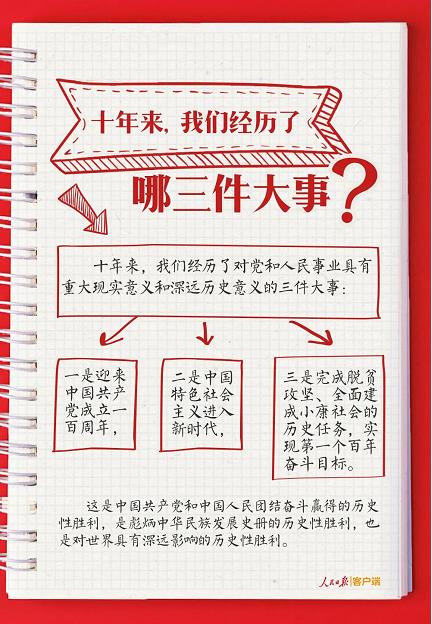 十年来，我们经历了
哪三件大事？
十年来，我们经历了对党和人民事业具有
重大现实意义和深远历史意义的三件大事：
一是迎来
中国共产
党成立一
百周年，
二是中国
特色社会
主义进入
新时代，
三是完成脱贫
攻坚、全面建
成小康社会的
历史任务，实
现第一个百年
奋斗目标。
这是中国共产党和中国人民团结奋斗赢得的历史
性胜利，是彪炳中华民族发展史册的历史性胜利，也
是对世界具有深远影响的历史性胜利。
人民日报|客户端